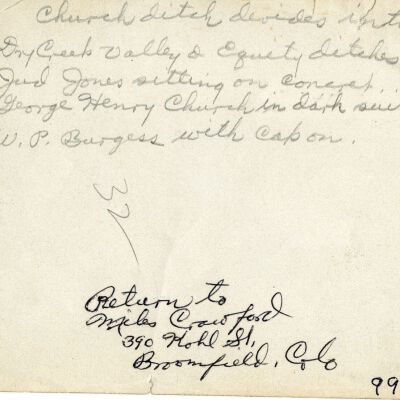 Church ditch devides into
Dry Creek Valley & Equity ditches
Jud Jones sitting on concret..
George Henry Church in dark sui
W. P. Burgess with cap on.
32
Return to
Miles Crawford
390 Kohl St,
Broomfield, Colo
99